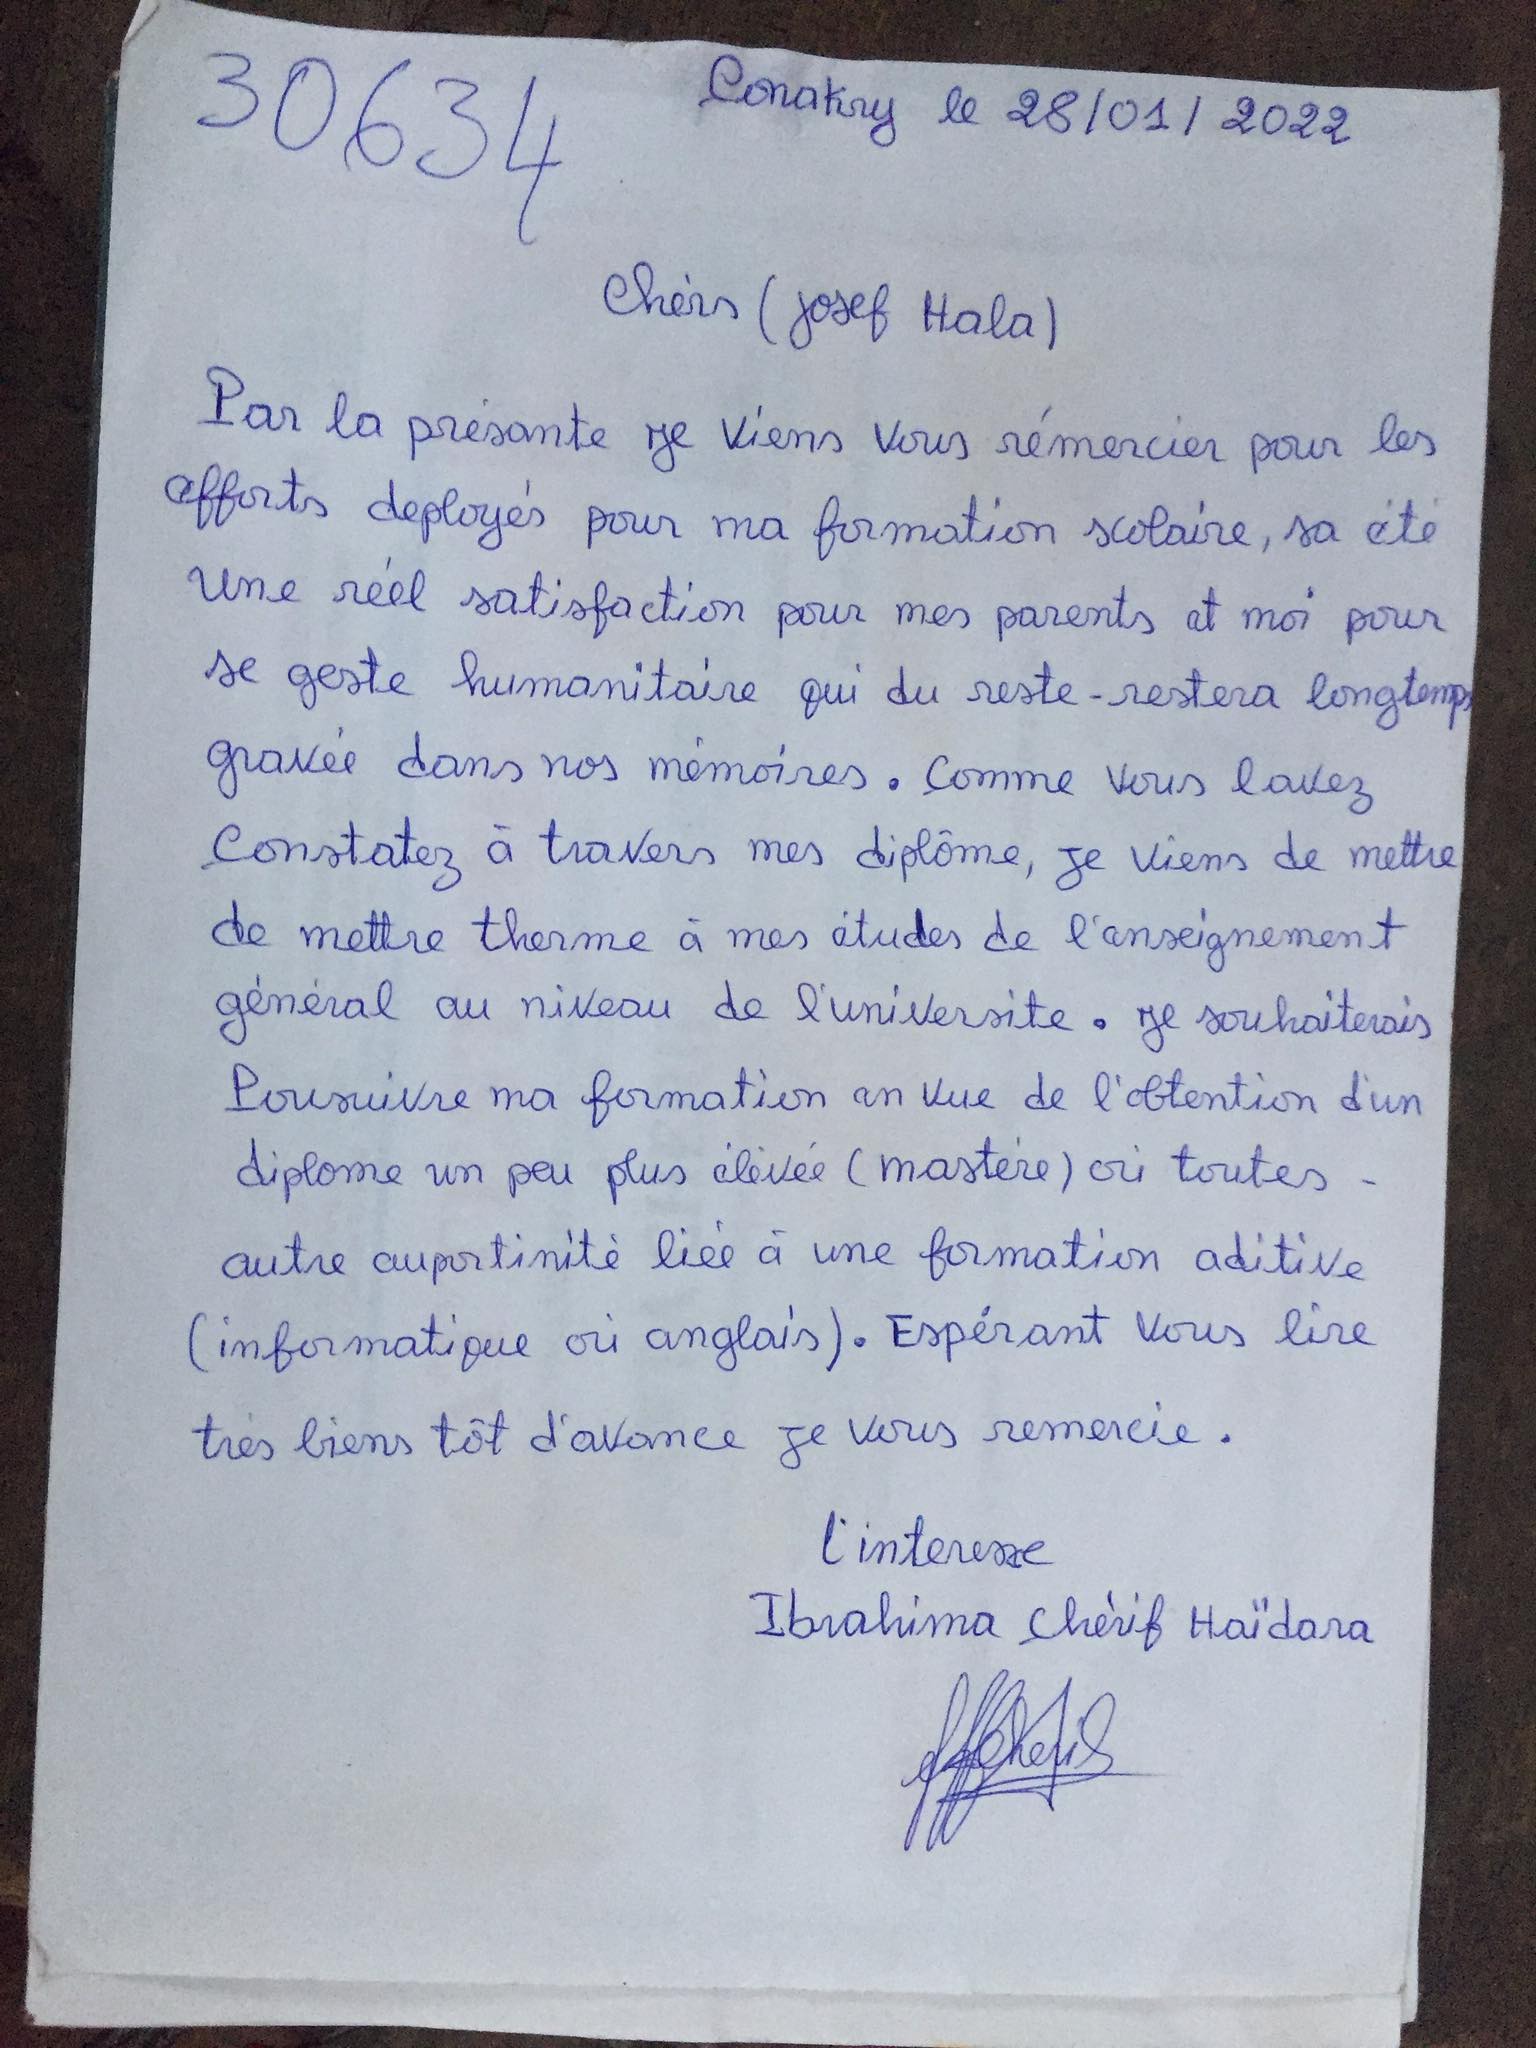 30634
Conakry le 28/01/2022
Chèrs (Josef Hala)
Par la présante je viens vous rémercier pour les
efforts deployés pour ma formation scolaire, sa été
une réel satisfaction pour mes parents et moi pour
se geste humanitaire qui du reste-restera longtemps
gravée dans nos mémoires. Comme vous lavez
Constatez à travers mes diplôme, je viens de mettre
de mettre therme à mes études de l'enseignement
général au niveau de l'universite. Je souhaiterais
Pousuivre ma formation en vue de l'obtention d'un
diplome un peu plus élévée (mastére) où toutes -
autre auportinité liée à une formation aditive
(informatique où anglais). Espérant vous lire
très biens tôt d'avance je vous remercie.
l'interesse
Ibrahima Chérif Haïdara